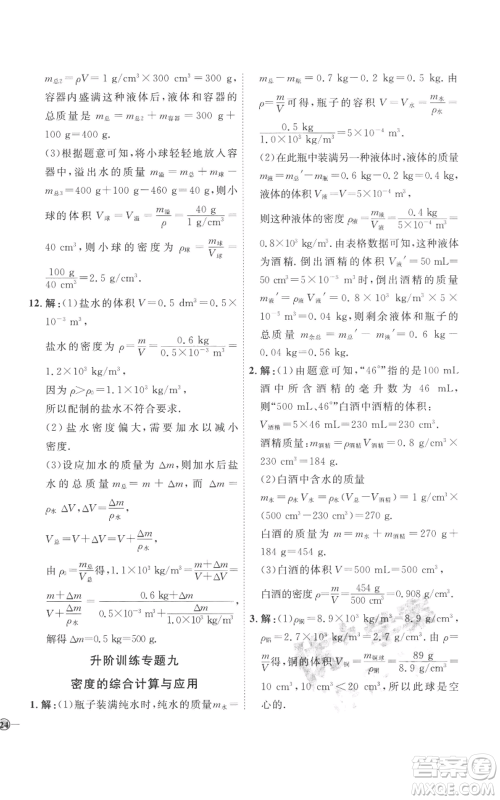 m总2=ρV=1 g/cm³×300 cm³=300 g,
小瓶装满这种液体后,液体的
总质量是 m总=300 g+100 g+
100 g=400 g。
(3)根据题意可知,将小球轻轻地放入
容器,溢出水的质量 m溢=m总+m球
-460 g=400 g+100 g-460 g=40 g,则
小球的体积 V球=V溢=m溢/ρ=40 g/(1 g/cm³)=
40 cm³,则小球的密度为 ρ球=m球/V球=
100 g/40 cm³=2.5 g/cm³。
12.解:(1)盐水的体积 V=0.5 dm³=0.5×
10⁻³ m³,
盐水的密度 ρ=m/V=0.6 kg/(0.5×10⁻³ m³)=
1.2×10³ kg/m³。
因为 ρ>ρ₀=1.1×10³ kg/m³,
所以所配制的盐水不合要求。
(2)盐水的密度偏大,需要加水以减小
密度。
(3)设应加水的质量为Δm,加水后盐
水的质量 m总=m+Δm,
ρ水 ΔV=Δm,ΔV=Δm/ρ水,
V总=V+ΔV=V+Δm/ρ水,
由 ρ₀=m总/V总 得 ρ₀=(m+Δm)/(V+ΔV)=
(m+Δm)/(V+Δm/ρ水)=(0.6 kg+Δm)/(0.5×10⁻³ m³+Δm/(1.0×10³ kg/m³))=1.1×10³ kg/m³,
解得 Δm=0.5 kg。
升阶训练专题九
密度的综合计算与应用
1.解:(1)瓶子装满纯水时,纯水的质量 m水=
m总-m瓶=0.7 kg-0.2 kg=0.5 kg。由
ρ=m/V可得,瓶子的容积 V=V水=m水/ρ水=
0.5 kg/(1.0×10³ kg/m³)=5×10⁻⁴ m³。
(2)在此瓶中装满另一种液体时,液体
质量 m液=m总′-m瓶=0.6 kg-0.2 kg=
0.4 kg,
液体的密度 ρ液=m液/V液=0.4 kg/(5×10⁻⁴ m³)=
0.8×10³ kg/m³,由表格数据可知,该液体
为酒精。倒出酒精的体积V液′=50 mL=
50 cm³=5×10⁻⁵ m³时,倒出酒精的质量
m液″=ρ液V液′=0.8×10³ kg/m³×5×
10⁻⁵ m³=0.04 kg,则剩余液体与瓶子的
总质量 m余总=m总′-m液″=0.6 kg-
0.04 kg=0.56 kg。
2.解:(1)由题意可知,“46°”是指100 mL
酒中所含酒精的毫升数为 46 mL,
则500 mL白酒中酒精的体积:
V酒精=5×46 mL=230 mL=230 cm³,
酒精质量:m酒精=ρ酒精V酒精=0.8 g/cm³
×230 cm³=184 g。
(2)白酒中水的质量
m水=ρ水V水=ρ水(V总-V酒精)=1 g/cm³×
(500 cm³-230 cm³)=270 g,
白酒的质量:m酒=m水+m酒精=270 g
+184 g=454 g。
(3)白酒的体积 V=500 mL=500 cm³,
白酒的密度:ρ=m/V=454 g/500 cm³=0.908 g/cm³。
3.解:(1)ρ铜=8.9×10³ kg/m³=8.9 g/cm³,
由ρ=m/V可得,铜的体积V铜=m/ρ铜=89 g/(8.9 g/cm³)=
10 cm³<V球=30 cm³,所以此球是空
心的。
24